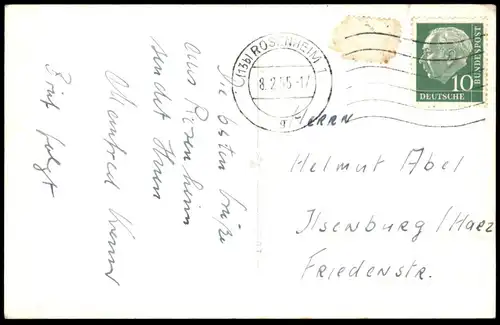 Die besten Grüße
aus Rosenheim
sendet Ihnen
Manfred
Brief folgt
(13b) ROSENHEIM 1
8.2.55-17
DEUTSCHE
BUNDESPOST
10
Herrn
Helmut Abel
Ilsenburg/Harz
Friedenstr.